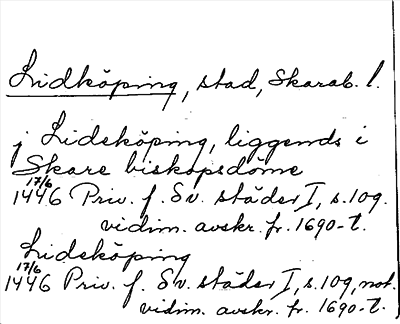 Lidköping, stad, Skarab. l.
j Lidekøping, liggends i
Skare biskopsdøme
17/6
1446 Priv. f. Sv. städer I, s. 109.
vidim. avskr. fr. 1690-t.
Lideköping
17/6
1446 Priv. f. Sv. städer I, s. 109, not.
vidim. avskr. fr. 1690-t.